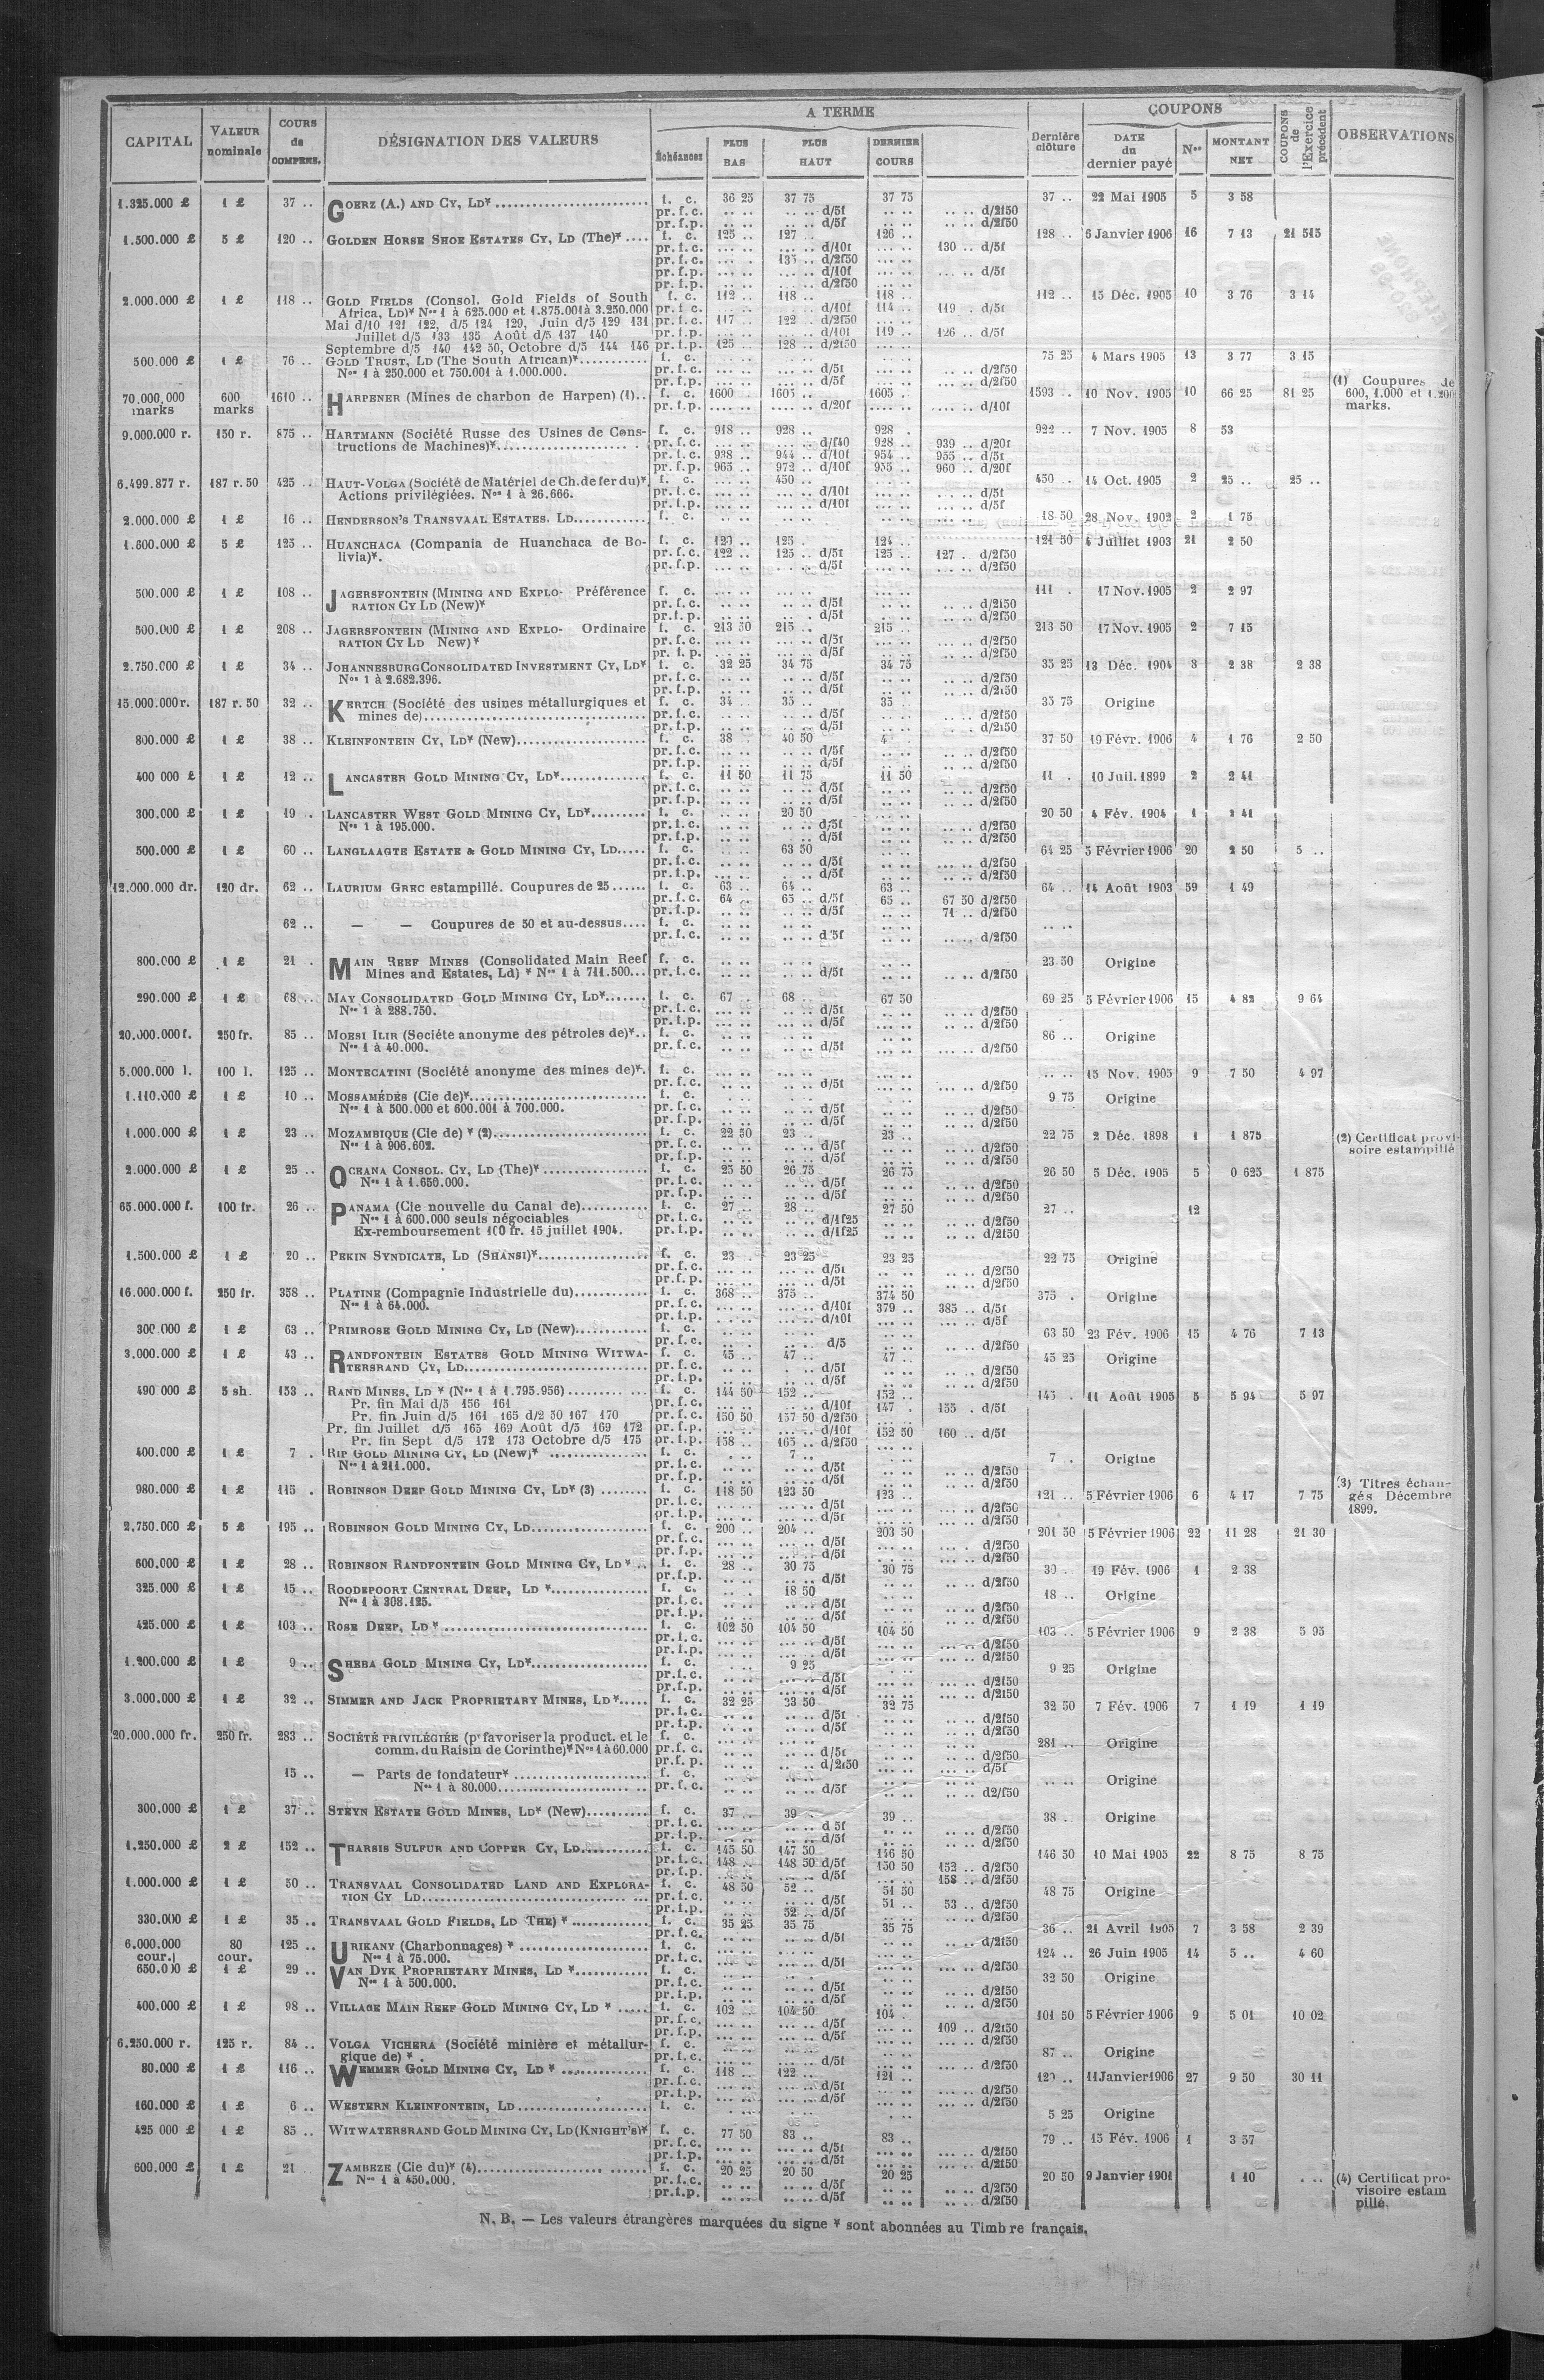 CAPITAL | VALEUR nominale | COURS de COMPENS. | DÉSIGNATION DES VALEURS | A TERME | Dernière clôture | COUPONS | COUPONS de l'Exercice précédent | OBSERVATIONS
Échéances | PLUS BAS | PLUS HAUT | DERNIER COURS | DATE du dernier payé | Nos | MONTANT NET
1.325.000 £ | 1 £ | 37 .. | GOERZ (A.) AND CY, LD* | f. c. | 36 25 | 37 75 | 37 75 | 37 .. | 22 Mai 1905 | 5 | 3 58
pr. f. c. | d/5f | d/2f50
pr. f. p. | d/5f | d/2f50
1.500.000 £ | 5 £ | 120 .. | GOLDEN HORSE SHOE ESTATES CY, LD (The)* | f. c. | 125 .. | 127 .. | 126 .. | 128 .. | 6 Janvier 1906 | 16 | 7 13 | 21 515
pr. f. c. | d/10f | 130 .. d/5f
pr. f. c. | 135 .. d/2f50
pr. f. p. | d/10f | d/5f
pr. f. p. | d/2f50
2.000.000 £ | 1 £ | 118 .. | GOLD FIELDS (Consol. Gold Fields of South | f. c. | 112 .. | 118 .. | 118 .. | 112 .. | 15 Déc. 1905 | 10 | 3 76 | 3 14
Africa, LD)* Nos 1 à 625.000 et 1.875.001 à 3.250.000 | pr. f. c. | d/10f | 114 .. | 119 . d/5f
Mai d/10 121 122, d/5 124 129, Juin d/5 129 131 | pr. f. c. | 117 .. | 122 . d/2f50
Juillet d/5 133 135 Août d/5 137 140 | pr. f. p. | d/10f | 119 .. | 126 .. d/5f
Septembre d/5 140 142 50, Octobre d/5 144 146 | pr. f. p. | 125 .. | 128 .. d/2f50
500.000 £ | 1 £ | 76 .. | GOLD TRUST, LD (The South African)* | f. c. | 75 25 | 4 Mars 1905 | 13 | 3 77 | 3 15
Nos 1 à 250.000 et 750.001 à 1.000.000. | pr. f. c. | d/5f | d/2f50
pr. f. p. | d/5f | d/2f50
70.000.000 marks | 600 marks | 1610 .. | HARPENER (Mines de charbon de Harpen) (1).. | f. c. | 1600 .. | 1605 .. | 1605 .. | 1593 .. | 10 Nov. 1905 | 10 | 66 25 | 81 25 | (1) Coupures de 600, 1.000 et 1.200 marks.
pr. f. p. | d/20f | d/10f
9.000.000 r. | 150 r. | 875 .. | HARTMANN (Société Russe des Usines de Cons- | f. c. | 918 .. | 928 .. | 928 . | 922 .. | 7 Nov. 1905 | 8 | 53
tructions de Machines)* | pr. f. c. | d/f40 | 928 .. | 939 .. d/20f
pr. f. c. | 938 .. | 944 .. d/10f | 954 .. | 955 .. d/5f
pr. f. p. | 965 .. | 972 .. d/10f | 955 .. | 960 .. d/20f
6.499.877 r. | 187 r. 50 | 425 .. | HAUT-VOLGA (Société de Matériel de Ch. de fer du)* | f. c. | 450 .. | 450 .. | 14 Oct. 1905 | 2 | 25 .. | 25 ..
Actions privilégiées. Nos 1 à 26.666. | pr. f. c. | d/10f | d/5f
pr. f. p. | d/10f | d/5f
2.000.000 £ | 1 £ | 16 .. | HENDERSON'S TRANSVAAL ESTATES. LD | f. c. | 18 50 | 28 Nov. 1902 | 2 | 1 75
1.600.000 £ | 5 £ | 125 .. | HUANCHACA (Compania de Huanchaca de Bo- | f. c. | 123 | 125 . | 124 .. | 121 50 | 4 Juillet 1903 | 21 | 2 50
livia)*. | pr. f. c. | 122 .. | 125 .. d/5f | 125 .. | 127 . d/2f50
pr. f. p. | d/5f | d/2f50
500.000 £ | 1 £ | 108 .. | JAGERSFONTEIN (MINING AND EXPLO- Préférence | f. c. | 111 . | 17 Nov. 1905 | 2 | 2 97
RATION CY LD (New)* | pr. f. c. | d/5f | d/2f50
pr. f. p. | d/5f | d/2f50
500.000 £ | 1 £ | 208 .. | JAGERSFONTEIN (MINING AND EXPLO- Ordinaire | f. c. | 213 50 | 215 .. | 215 .. | 213 50 | 17 Nov. 1905 | 2 | 7 15
RATION CY LD New)* | pr. f. c. | d/5f | d/2f50
pr. f. p. | d/5f | d/2f50
2.750.000 £ | 1 £ | 34 .. | JOHANNESBURG CONSOLIDATED INVESTMENT CY, LD* | f. c. | 32 25 | 34 75 | 34 75 | 35 25 | 13 Déc. 1904 | 3 | 2 38 | 2 38
Nos 1 à 2.682.396. | pr. f. c. | d/5f | d/2f50
pr. f. p. | d/5f | d/2f50
15.000.000 r. | 187 r. 50 | 32 .. | KERTCH (Société des usines métallurgiques et | f. c. | 34 . | 35 .. | 35 .. | 35 75 | Origine
mines de) | pr. f. c. | d/5f | d/2f50
pr. f. p. | d/5f | d/2f50
800.000 £ | 1 £ | 38 .. | KLEINFONTEIN CY, LD* (New) | f. c. | 38 .. | 40 50 | 37 50 | 19 Févr. 1906 | 4 | 1 76 | 2 50
pr. f. c. | d/5f | d/2f50
pr. f. p. | d/5f | d/2f50
400 000 £ | 1 £ | 12 .. | LANCASTER GOLD MINING CY, LD* | f. c. | 11 50 | 11 75 | 11 50 | 11 . | 10 Juil. 1899 | 2 | 2 41
pr. f. c. | d/5f | d/2f50
pr. f. p. | d/5f | d/2f50
300.000 £ | 1 £ | 19 . | LANCASTER WEST GOLD MINING CY, LD* | f. c. | 20 50 | 20 50 | 4 Fév. 1904 | 1 | 2 41
Nos 1 à 195.000. | pr. f. c. | d/5f | d/2f50
pr. f. p. | d/5f | d/2f50
500.000 £ | 1 £ | 60 .. | LANGLAAGTE ESTATE & GOLD MINING CY, LD | f. c. | 63 50 | 64 25 | 5 Février 1906 | 20 | 2 50 | 5 ..
pr. f. c. | d/5f | d/2f50
pr. f. p. | d/5f | d/2f50
12.000.000 dr. | 120 dr. | 62 .. | LAURIUM GREC estampillé. Coupures de 25 | f. c. | 63 .. | 64 .. | 63 .. | 64 .. | 14 Août 1903 | 59 | 1 49
pr. f. c. | 64 .. | 65 .. d/5f | 65 .. | 67 50 d/2f50
pr. f. p. | d/5f | 71 .. d/2f50
62 .. | — — Coupures de 50 et au-dessus | f. c.
pr. f. c. | d/5f | d/2f50
800.000 £ | 1 £ | 21 . | MAIN REEF MINES (Consolidated Main Reef | f. c. | 23 50 | Origine
Mines and Estates, Ld) * Nos 1 à 711.500 | pr. f. c. | d/5f | d/2f50
290.000 £ | 1 £ | 68 .. | MAY CONSOLIDATED GOLD MINING CY, LD* | f. c. | 67 . | 68 .. | 67 50 | 69 25 | 5 Février 1906 | 15 | 4 82 | 9 64
Nos 1 à 288.750. | pr. f. c. | d/5f | d/2f50
pr. f. p. | d/5f | d/2f50
20.000.000 f. | 250 fr. | 85 .. | MOESI ILIR (Sociéte anonyme des pétroles de)* | f. c. | 86 .. | Origine
Nos 1 à 40.000. | pr. f. c. | d/5f | d/2f50
5.000.000 l. | 100 l. | 125 .. | MONTECATINI (Société anonyme des mines de)* | f. c. | 15 Nov. 1905 | 9 | 7 50 | 4 97
pr. f. c. | d/5f | d/2f50
1.110.000 £ | 1 £ | 10 .. | MOSSAMÉDÈS (Cie de)* | f. c. | 9 75 | Origine
Nos 1 à 500.000 et 600.001 à 700.000. | pr. f. c. | d/5f | d/2f50
pr. f. p. | d/5f | d/2f50
1.000.000 £ | 1 £ | 23 .. | MOZAMBIQUE (Cie de) * (2) | f. c. | 22 50 | 23 .. | 23 .. | 22 75 | 2 Déc. 1898 | 1 | 1 875 | (2) Certificat provisoire estampillé
Nos 1 à 906.602. | pr. f. c. | d/5f | d/2f50
pr. f. p. | d/5f | d/2f50
2.000.000 £ | 1 £ | 25 .. | OCEANA CONSOL. CY, LD (The)* | f. c. | 25 50 | 26 75 | 26 75 | 26 50 | 5 Déc. 1905 | 5 | 0 625 | 1 875
Nos 1 à 1.650.000. | pr. f. c. | d/5f | d/2f50
pr. f. p. | d/5f | d/2f50
65.000.000 f. | 100 fr. | 26 .. | PANAMA (Cie nouvelle du Canal de) | f. c. | 27 .. | 28 .. | 27 50 | 27 .. | 12
Nos 1 à 600.000 seuls négociables | pr. f. c. | d/1f25 | d/2f50
Ex-remboursement 100 fr. 15 juillet 1904. | pr. f. p. | d/1f25 | d/2f50
1.500.000 £ | 1 £ | 20 .. | PEKIN SYNDICATE, LD (SHANSI)* | f. c. | 23 . | 23 25 | 23 25 | 22 75 | Origine
pr. f. c. | d/5f | d/2f50
pr. f. p. | d/5f | d/2f50
16.000.000 f. | 250 fr. | 358 .. | PLATINE (Compagnie Industrielle du) | f. c. | 368 .. | 375 .. | 374 50 | 375 . | Origine
Nos 1 à 64.000. | pr. f. c. | d/10f | 379 .. | 385 .. d/5f
pr. f. p. | d/10f | d/5f
300.000 £ | 1 £ | 63 .. | PRIMROSE GOLD MINING CY, LD (New) | f. c. | 63 50 | 23 Fév. 1906 | 15 | 4 76 | 7 13
pr. f. c. | d/5 | d/2f50
3.000.000 £ | 1 £ | 43 .. | RANDFONTEIN ESTATES GOLD MINING WITWA- | f. c. | 45 .. | 47 .. | 47 .. | 45 25 | Origine
TERSRAND CY, LD | pr. f. c. | d/5f | d/2f50
pr. f. p. | d/5f | d/2f50
490 000 £ | 5 sh. | 153 .. | RAND MINES, LD * (Nos 1 à 1.795.956) | f. c. | 144 50 | 152 .. | 152 .. | 145 . | 11 Août 1905 | 5 | 5 94 | 5 97
Pr. fin Mai d/5 156 161 | pr. f. c. | d/10f | 147 . | 155 . d/5f
Pr. fin Juin d/5 161 165 d/2 50 167 170 | pr. f. c. | 150 50 | 157 50 d/2f50
Pr. fin Juillet d/5 165 169 Août d/5 169 172 | pr. f. p. | d/10f | 152 50 | 160 .. d/5f
Pr. fin Sept d/5 172 173 Octobre d/5 175 | pr. f. p. | 158 .. | 165 .. d/2f50
400.000 £ | 1 £ | 7 . | RIP GOLD MINING CY, LD (New)* | f. c. | 7 .. | 7 . | Origine
Nos 1 à 211.000. | pr. f. c. | d/5f | d/2f50
pr. f. p. | d/5f | d/2f50
980.000 £ | 1 £ | 115 . | ROBINSON DEEP GOLD MINING CY, LD* (3) | f. c. | 118 50 | 123 50 | 123 .. | 121 .. | 5 Février 1906 | 6 | 4 17 | 7 75 | (3) Titres échangés Décembre 1899.
pr. f. c. | d/5f | d/2f50
pr. f. p. | d/5f | d/2f50
2.750.000 £ | 5 £ | 195 .. | ROBINSON GOLD MINING CY, LD | f. c. | 200 .. | 204 .. | 203 50 | 201 50 | 5 Février 1906 | 22 | 11 28 | 21 30
pr. f. c. | d/5f | d/2f50
pr. f. p. | d/5f | d/2f50
600.000 £ | 1 £ | 28 .. | ROBINSON RANDFONTEIN GOLD MINING CY, LD * | f. c. | 28 .. | 30 75 | 30 75 | 30 . | 19 Fév. 1906 | 1 | 2 38
pr. f. p. | d/5f | d/2f50
325.000 £ | 1 £ | 15 .. | ROODEPOORT CENTRAL DEEP, LD * | f. c. | 18 50 | 18 .. | Origine
Nos 1 à 308.125. | pr. f. c. | d/5f | d/2f50
pr. f. p. | d/5f | d/2f50
425.000 £ | 1 £ | 103 .. | ROSE DEEP, LD * | f. c. | 102 50 | 104 50 | 104 50 | 103 .. | 5 Février 1906 | 9 | 2 38 | 5 95
pr. f. c. | d/5f | d/2f50
pr. f. p. | d/5f | d/2f50
1.200.000 £ | 1 £ | 9 .. | SHEBA GOLD MINING CY, LD* | f. c. | 9 25 | 9 25 | Origine
pr. f. c. | d/5f | d/2f50
pr. f. p. | d/5f | d/2f50
3.000.000 £ | 1 £ | 32 .. | SIMMER AND JACK PROPRIETARY MINES, LD* | f. c. | 32 25 | 33 50 | 32 75 | 32 50 | 7 Fév. 1906 | 7 | 1 19 | 1 19
pr. f. c. | d/5f | d/2f50
pr. f. p. | d/5f | d/2f50
20.000.000 fr. | 250 fr. | 283 .. | SOCIÉTÉ PRIVILÉGIÉE (pr favoriser la product. et le | f. c. | 281 .. | Origine
comm. du Raisin de Corinthe)* Nos 1 à 60.000 | pr. f. c. | d/5f | d/2f50
pr. f. p. | d/2f50 | d/5f
15 .. | — Parts de fondateur* | f. c. | Origine
Nos 1 à 80.000 | pr. f. c. | d/5f | d2/f50
300.000 £ | 1 £ | 37 .. | STEYN ESTATE GOLD MINES, LD* (New) | f. c. | 37 .. | 39 . | 39 .. | 38 .. | Origine
pr. f. c. | d 5f | d/2f50
pr. f. p. | d/5f | d/2f50
1.250.000 £ | 2 £ | 152 .. | THARSIS SULFUR AND COPPER CY, LD | f. c. | 145 50 | 147 50 | 146 50 | 146 50 | 10 Mai 1905 | 22 | 8 75 | 8 75
pr. f. c. | 148 .. | 148 50 d/5f | 150 50 | 152 .. d/2f50
pr. f. p. | d/5f | 158 .. d/2f50
1.000.000 £ | 1 £ | 50 .. | TRANSVAAL CONSOLIDATED LAND AND EXPLORA- | f. c. | 48 50 | 52 .. | 51 50 | 48 75 | Origine
TION CY LD | pr. f. c. | d/5f | 51 .. | 53 .. d/2f50
pr. f. p. | 52 .. d/5f | d/2f50
330.000 £ | 1 £ | 35 .. | TRANSVAAL GOLD FIELDS, LD THE) * | f. c. | 35 25 | 35 75 | 35 75 | 36 .. | 21 Avril 1905 | 7 | 3 58 | 2 39
pr. f. c. | d/5f | d/2f50
6.000.000 cour. | 80 cour. | 125 .. | URIKANY (Charbonnages) * | f. c. | 124 .. | 26 Juin 1905 | 14 | 5 .. | 4 60
Nos 1 à 75.000. | pr. f. c. | d/5f | d/2f50
650.000 £ | 1 £ | 29 .. | VAN DYK PROPRIETARY MINES, LD * | f. c. | 32 50 | Origine
Nos 1 à 500.000. | pr. f. c. | d/5f | d/2f50
pr. f. p. | d/5f | d/2f50
400.000 £ | 1 £ | 98 .. | VILLAGE MAIN REEF GOLD MINING CY, LD * | f. c. | 102 .. | 104 50 | 104 .. | 101 50 | 5 Février 1906 | 9 | 5 01 | 10 02
pr. f. c. | d/5f | 109 .. d/2f50
pr. f. p. | d/5f | d/2f50
6.250.000 r. | 125 r. | 84 .. | VOLGA VICHERA (Société minière et métallur- | f. c. | 87 .. | Origine
gique de) * . | pr. f. c. | d/5f | d/2f50
80.000 £ | 1 £ | 116 .. | WEMMER GOLD MINING CY, LD * | f. c. | 118 .. | 122 .. | 121 .. | 120 .. | 11 Janvier 1906 | 27 | 9 50 | 30 11
pr. f. c. | d/5f | d/2f50
pr. f. p. | d/5f | d/2f50
160.000 £ | 1 £ | 6 .. | WESTERN KLEINFONTEIN, LD | f. c. | 5 25 | Origine
425 000 £ | 1 £ | 85 .. | WITWATERSRAND GOLD MINING CY, LD (KNIGHT'S)* | f. c. | 77 50 | 83 .. | 83 .. | 79 .. | 15 Fév. 1906 | 1 | 3 57
pr. f. c. | d/5f | d/2f50
pr. f. p. | d/5f | d/2f50
600.000 £ | 1 £ | 21 . | ZAMBEZE (Cie du)* (4) | f. c. | 20 25 | 20 50 | 20 25 | 20 50 | 9 Janvier 1901 | 1 10 | (4) Certificat provisoire estam pillé.
Nos 1 à 450.000. | pr. f. c. | d/5f | d/2f50
pr. f. p. | d/5f | d/2f50
N. B. — Les valeurs étrangères marquées du signe * sont abonnées au Timbre français.